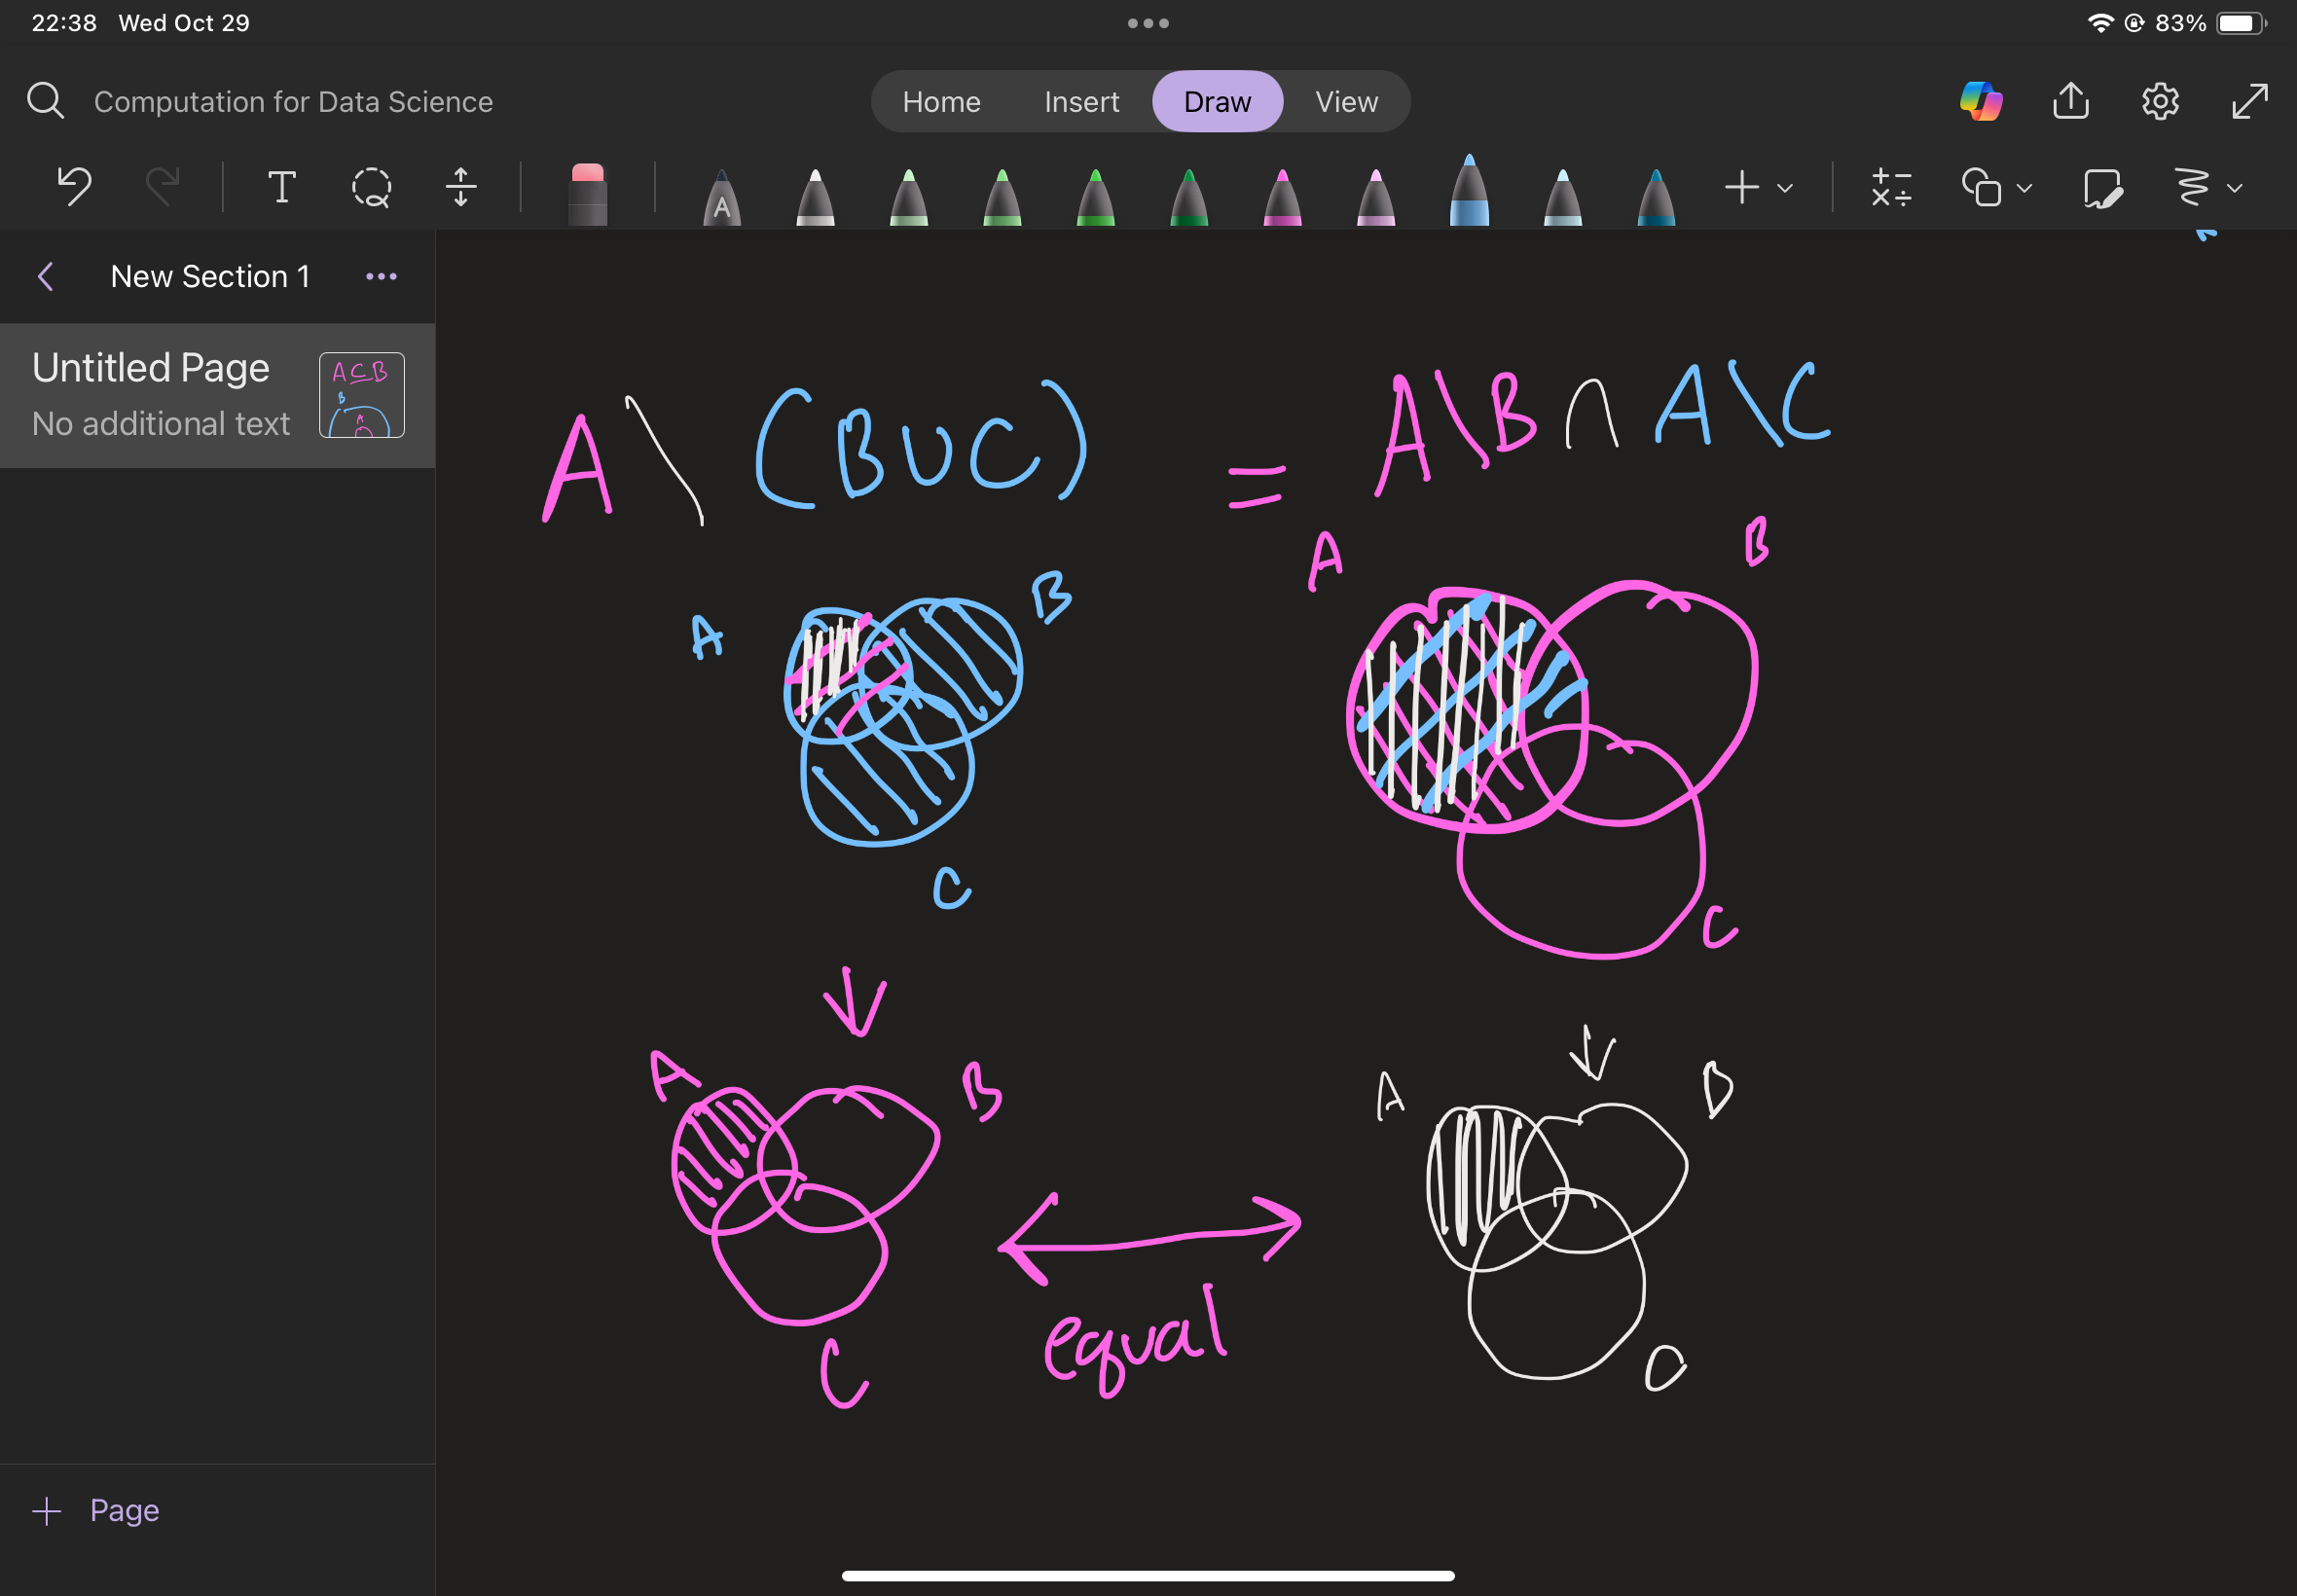 22:38 Wed Oct 29
83%
Computation for Data Science
Home Insert Draw View
T A
New Section 1
Untitled Page
No additional text
A ⊆ B
B
A
A \ (B ∪ C) = A\B ∩ A\C
A B
A B
C
C
A B
A B
C
C
equal
Page